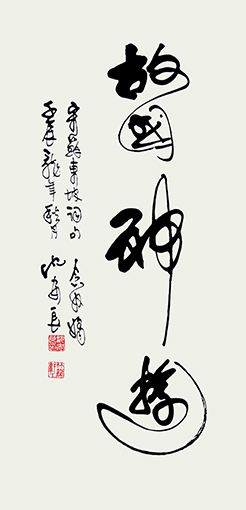 故國神遊
宋蘇東坡詞句 念奴嬌
壬辰龍年秋月